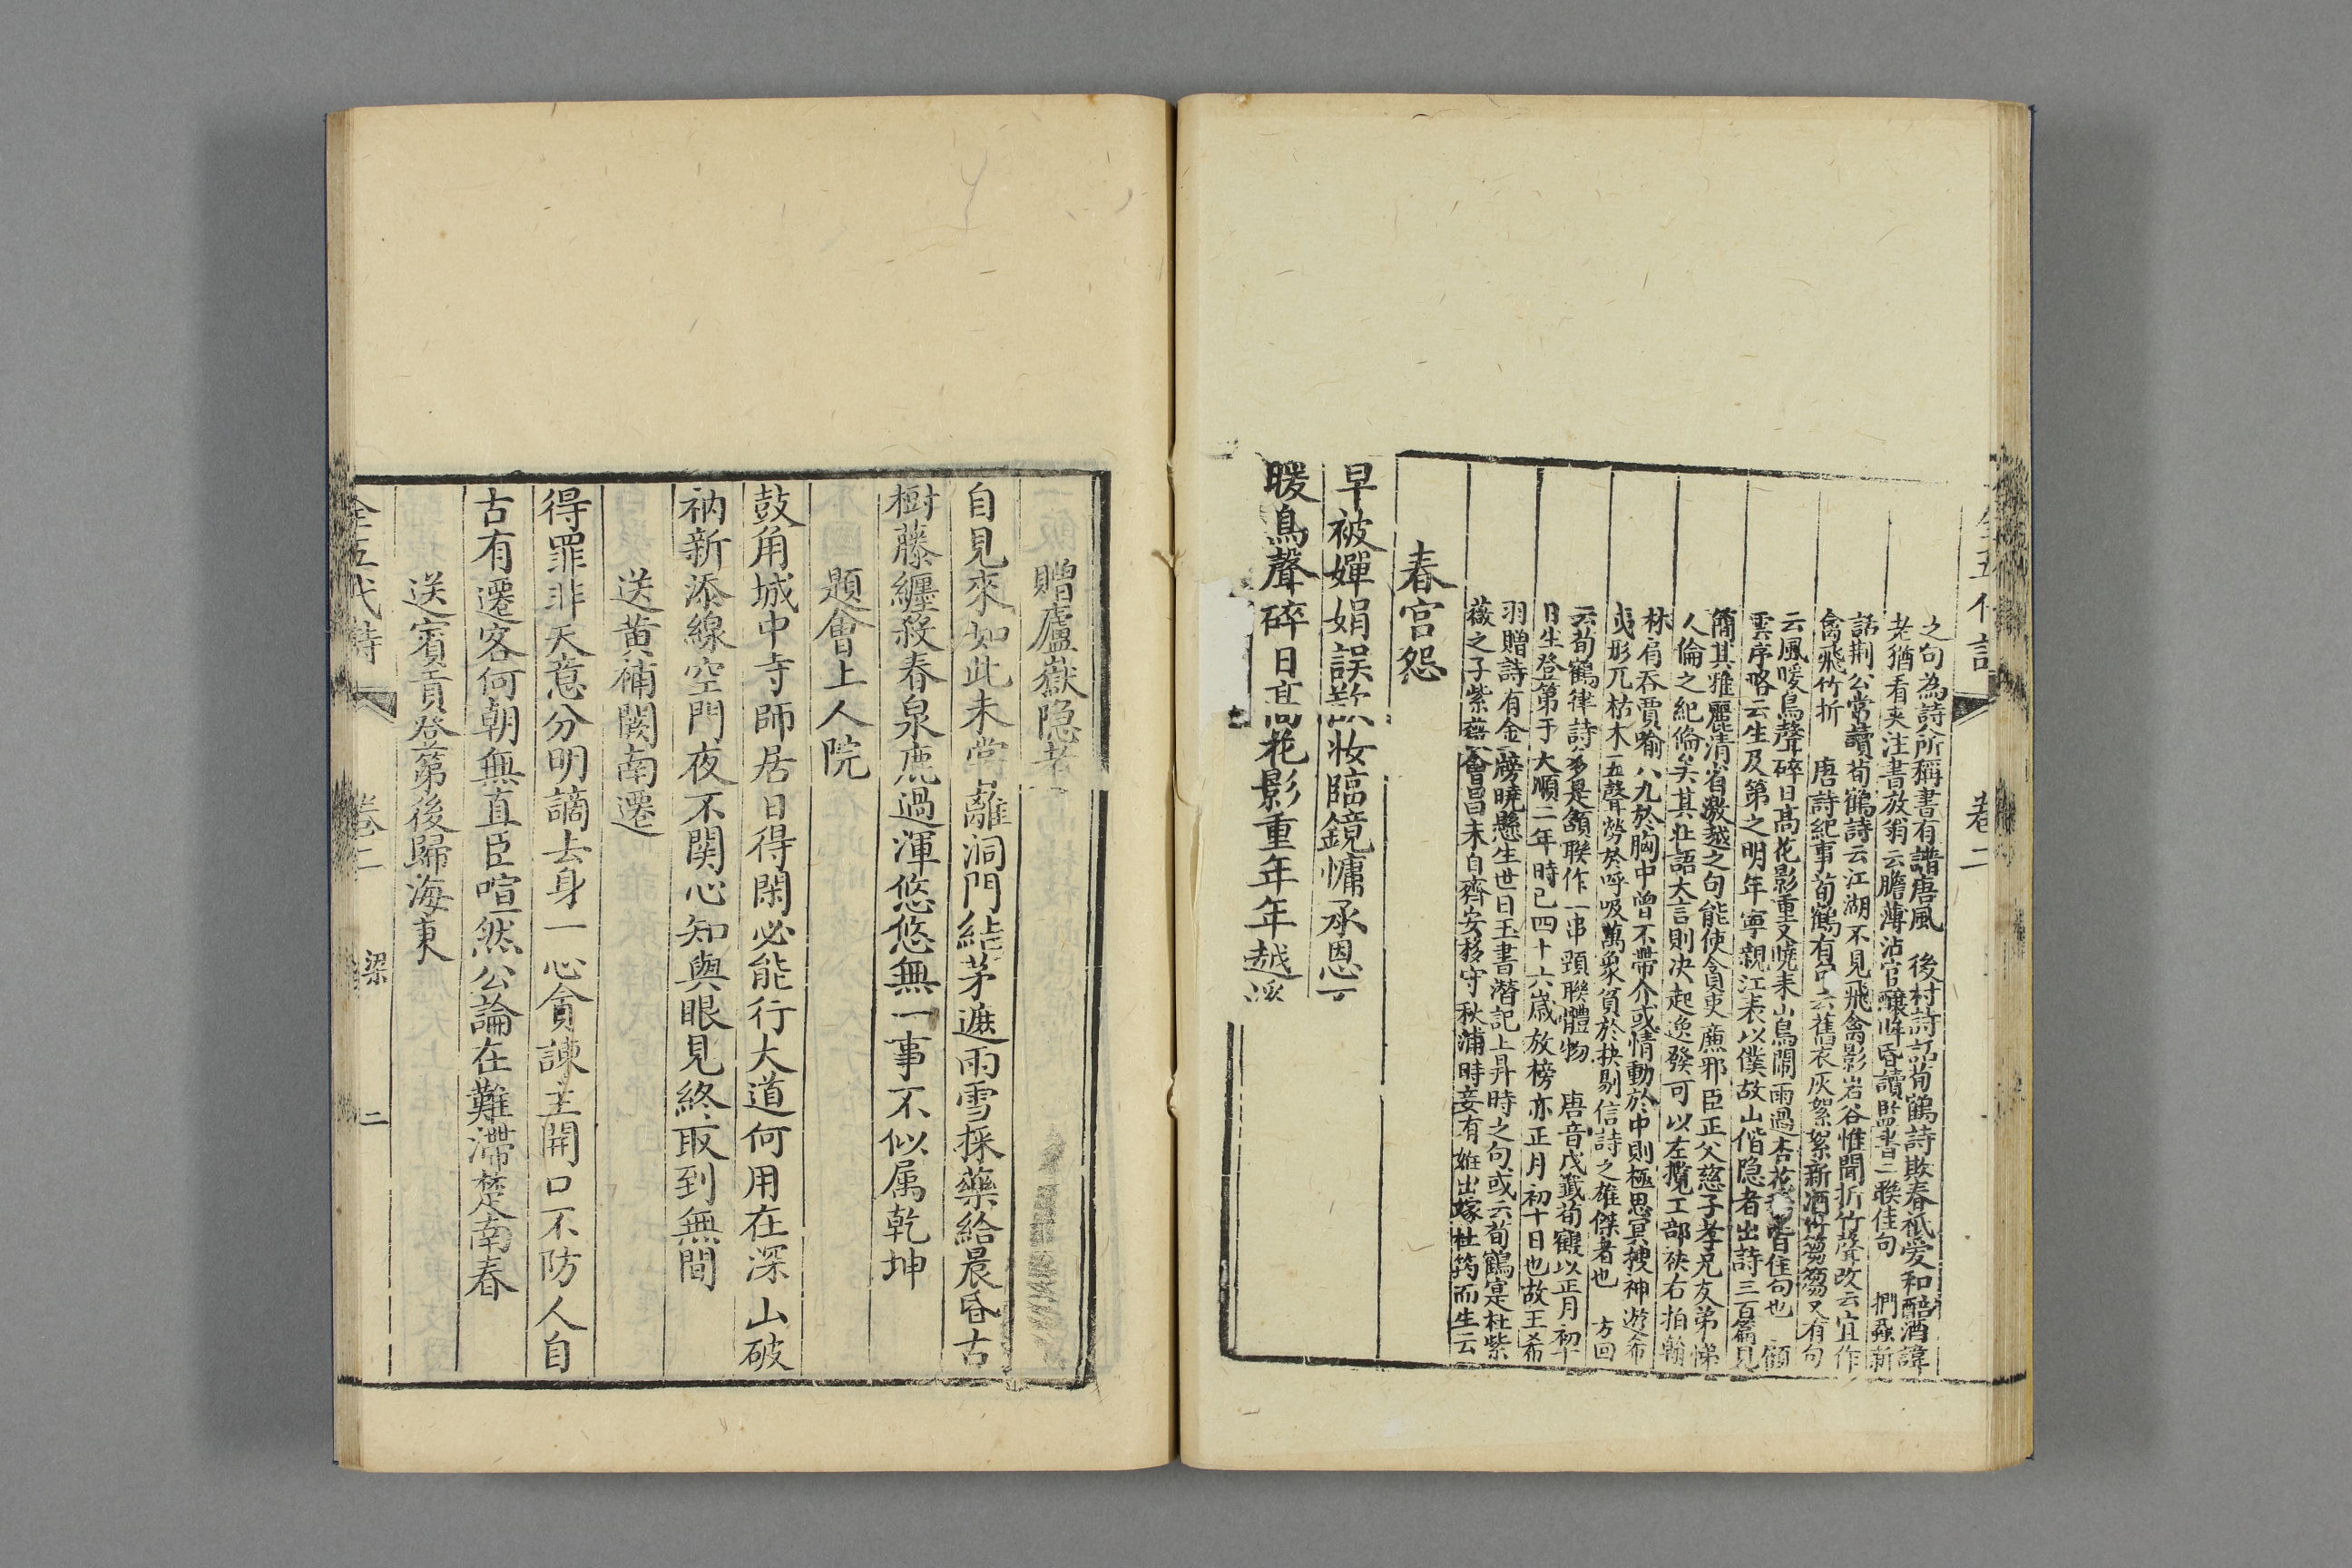 全五代詩 卷二
之句為詩人所稱書有譜唐風 後村詩話荀鶴詩欺春秪愛和醅酒諱
老猶看夾注書放翁云膽薄沾官釀眸昏讀監書二聯佳句 捫蝨新
話荆公常讀荀鶴詩云江湖不見飛禽影岩谷惟聞折竹聲改云宜作
禽飛竹折 唐詩紀事荀鶴有句云舊衣灰絮絮新酒竹篘篘又有句
云風暖鳥聲碎日高花影重又曉来山鳥鬧雨過杏花皆佳句也 顧
雲序略云生及第之明年寧親江表以僕故山偕隐者出詩三百篇見
簡其雅麗清省激越之句能使貪吏廉邪臣正父慈子孝兄友弟悌
人倫之紀俻矣其壮語大言則决起逸發可以左攬工部袂右拍翰
林肩吞賈喻八九於胸中曾不帶介或情動於中則極思冥搜神遊希
夷形兀枯木五聲勞於呼吸萬象貧於抉剔信詩之雄傑者也 方回
云荀鶴律詩多是頷聯作一串頸聯體物 唐音戊籖荀鶴以正月初十
日生登第于大順二年時已四十六歲放榜亦正月初十日也故王希
羽贈詩有金牓曉懸生世日玉書潛記上昇時之句或云荀鶴寔杜紫
薇之子紫薇會昌末自齊安移守秋浦時妾有妊出嫁杜筠而生云
春宫怨
早被嬋娟誤欲妝臨鏡慵承恩不
暖鳥聲碎日高花影重年年越溪
贈廬嶽隐者
自見來如此未嘗離洞門結茅遮雨雪採藥給晨昏古
樹藤纏殺春泉鹿過渾悠悠無一事不似属乾坤
題會上人院
鼓角城中寺師居日得閑必能行大道何用在深山破
衲新添線空門夜不関心知與眼見終取到無間
送黄補闕南遷
得罪非天意分明謫去身一心貪諫主開口不防人自
古有遷客何朝無直臣喧然公論在難滯楚南春
送賓貢登第後歸海東
全五代詩 卷二 梁 二